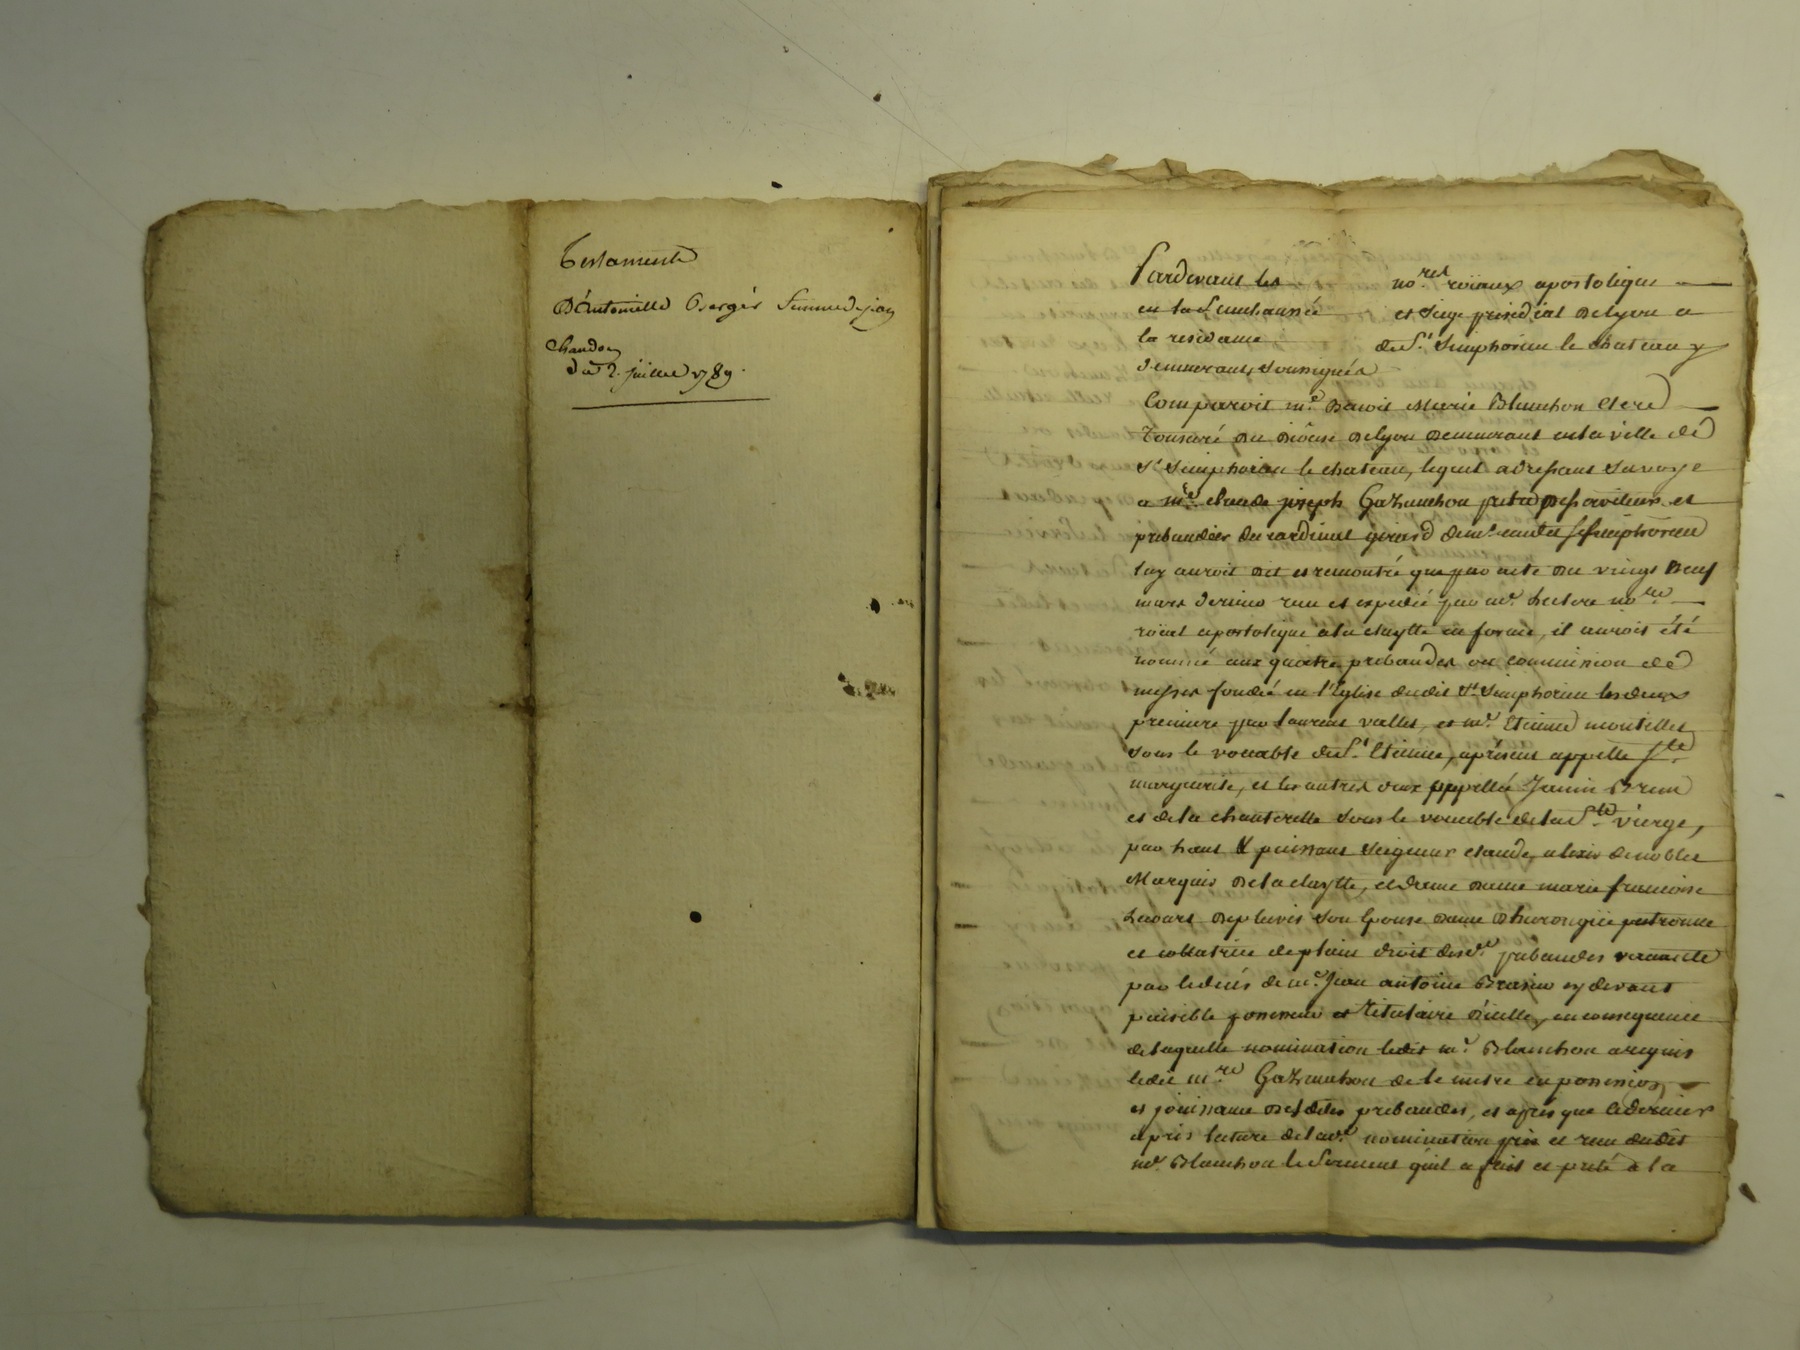 Testament
D'Antoinette Bergér femme de jean
Chandon
du 2. juillet 1789.
Pardevant les no.res roiaux apostolique
en la Senechaussée et Siege presidial de lyon a
la residance de St. Simphorien le chateau y
demeurants soussignés
Comparoit me. Benoit Marie Blanchon Clerc
Tonsuré du diocèse de lyon demeurant en la ville de
St Simphorien le chateau, lequel adressant sa voix
a mre. claude joseph Gazanchon et
prebandier du cardinal girard demt. audit St Simphorien
luy auroit dit et remontré que par acte du vingt neuf
mars dernier recu et expedié par me. no.re
roial apostolique a la clayette en forme, il auroit été
nommé aux quatre prebandes ou commission de
messes fondée en l'Eglise dudit St. Simphorien les deux
premiere par laurent valles, et me. Etienne montelles
sous le vocable de St. Etienne, apresent appellé Ste.
marguerite, et les autres deux appellée Janin Brun
et de la chanterelle sous le vocable de la Ste. vierge,
par haut & puissant Seigneur claude, alexis de nobles
Marquis de la clayette, et dame dame marie francoise
son Epouse dame patronne
et collatrice de plain droit desd. prebandes vacante
par le décés de me. Jean antoine Brasier cy devant
paisible possesseur et titulaire d'icelle, en consequence
de laquelle nomination ledit me. Blanchon a requis
ledit mre Gazanchon de le mettre en possession
et jouissance desdites prebandes, et apres que ce dernier
apris lecture de lad. nomination pris et recu dudit
me. Blanchon le serment qu'il a fait et preté a la